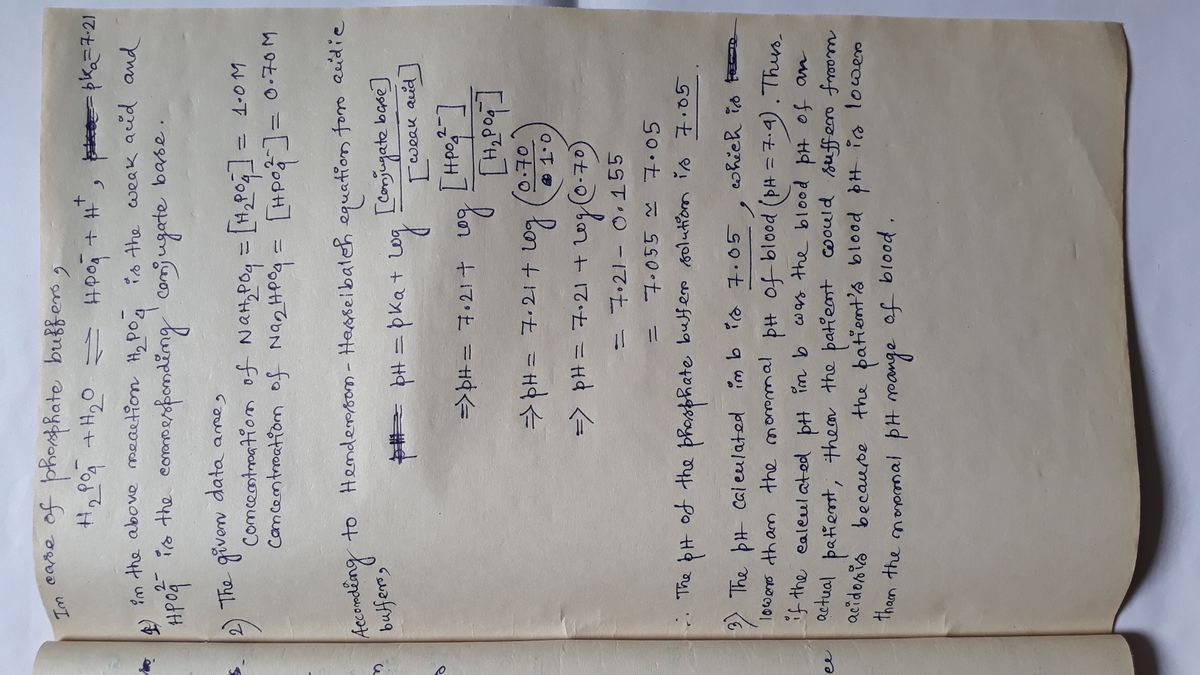 In case of phosphate buffers,
H₂PO₄⁻ + H₂O ⇌ HPO₄⁻ + H⁺, pKa = 7.21
1) in the above reaction H₂PO₄⁻ is the weak acid and
HPO₄²⁻ is the corresponding conjugate base.
2) The given data are,
Concentration of NaH₂PO₄ = [H₂PO₄⁻] = 1.0 M
Concentration of Na₂HPO₄ = [HPO₄²⁻] = 0.70 M
According to Henderson-Hasselbalch equation for acidic
buffers,
pH = pKa + log [Conjugate base]/[weak acid]
⇒ pH = 7.21 + log [HPO₄²⁻]/[H₂PO₄⁻]
⇒ pH = 7.21 + log (0.70/1.0)
⇒ pH = 7.21 + log (0.70)
= 7.21 - 0.155
= 7.055 ≃ 7.05
∴ The pH of the phosphate buffer solution is 7.05.
3) The pH calculated in b is 7.05, which is
lower than the normal pH of blood (pH = 7.4). Thus,
if the calculated pH in b was the blood pH of an
actual patient, then the patient would suffer from
acidosis because the patient's blood pH is lower
than the normal pH range of blood.